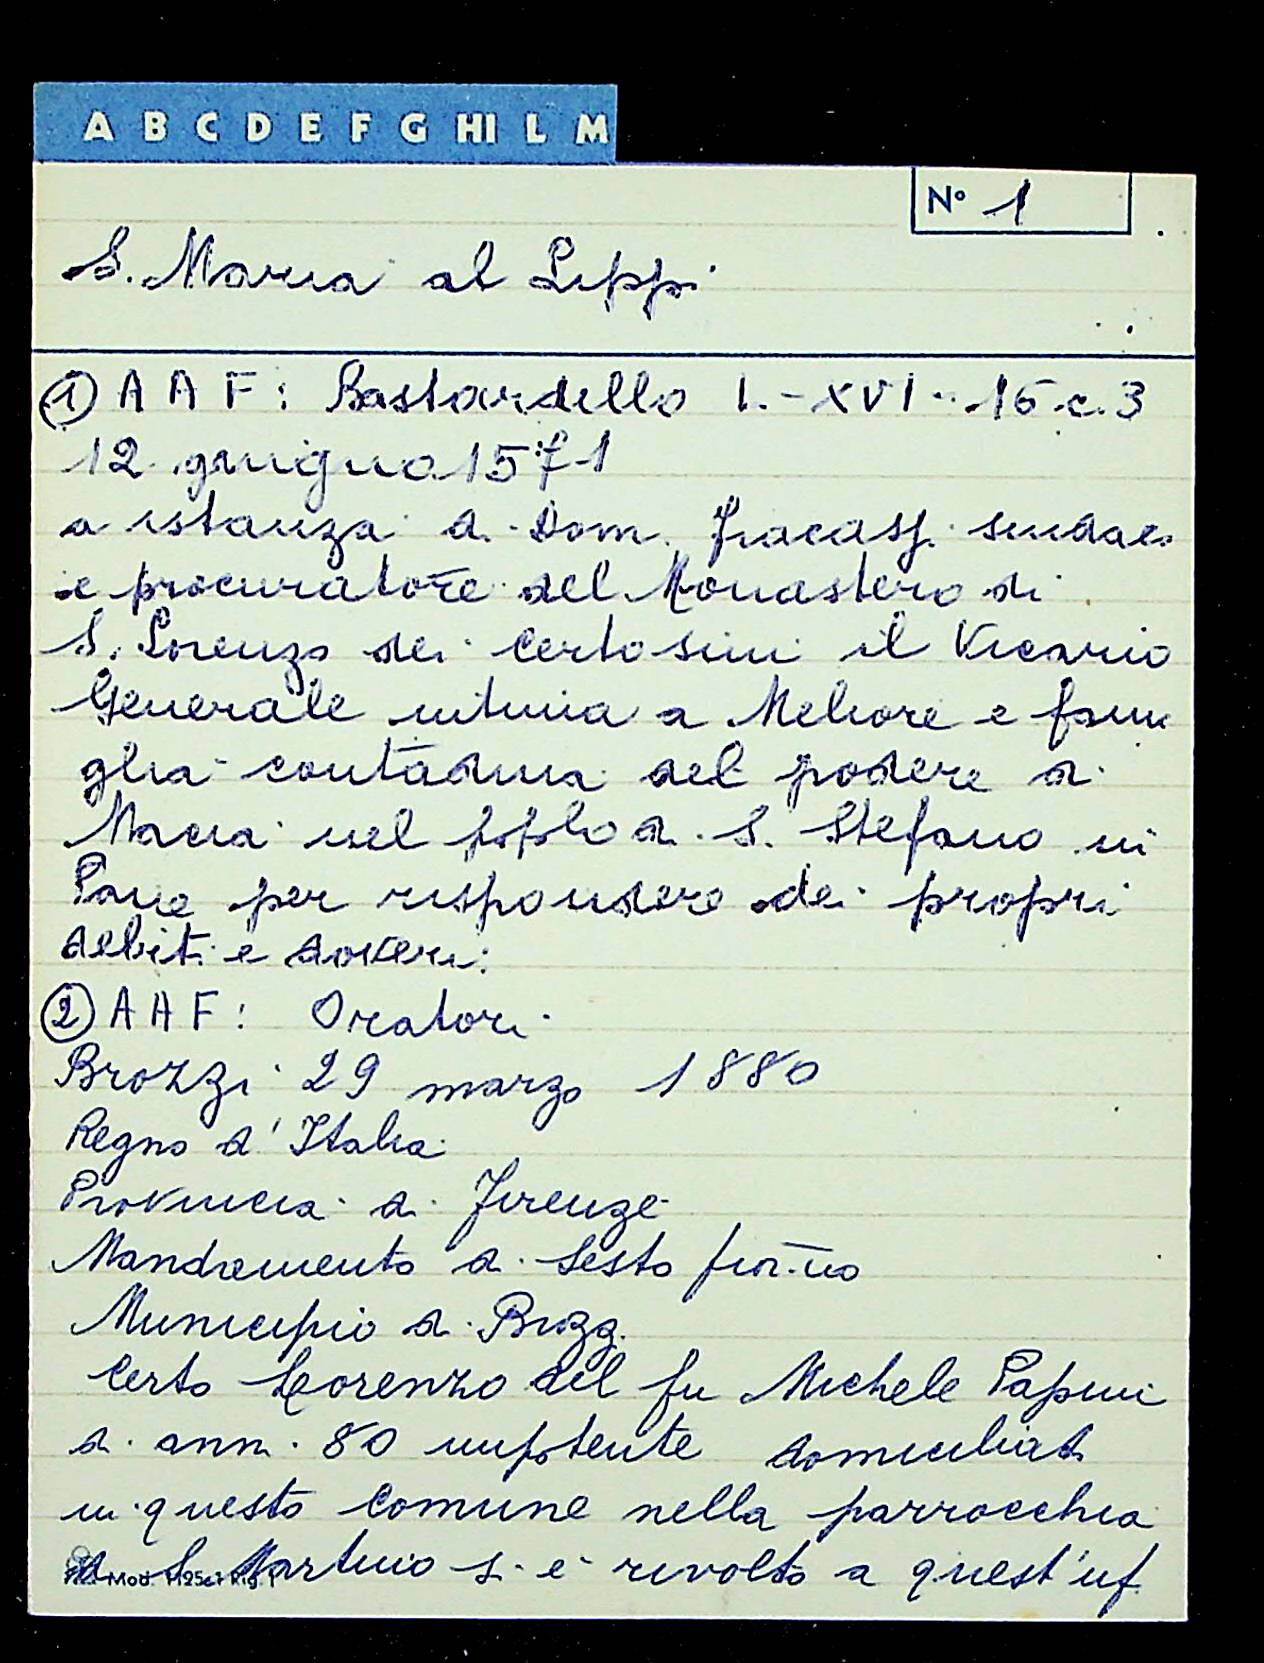 A B C D E F G HI L M
N° 1
S. Maria al Lippi
① A A F: Bastardello L.-XVI-16 c. 3
12 giugno 1571
a istanza di Dom. Fracass. sindaco
e procuratore del Monastero di
S. Lorenzo dei Certosini il Vicario
Generale intima a Meliore e fami
glia contadina del podere di
Macia nel popolo di S. Stefano in
Pane per rispondere dei propri
debiti e doveri:
② A A F: Oratori
Brozzi 29 marzo 1880
Regno d'Italia
Provincia di Firenze
Mandamento di Sesto fior.no
Municipio di Brozzi
Certo Lorenzo del fu Michele Papini
di anni 80 impotente domiciliato
in questo comune nella parrocchia
di S. Martino si è rivolto a quest'uf